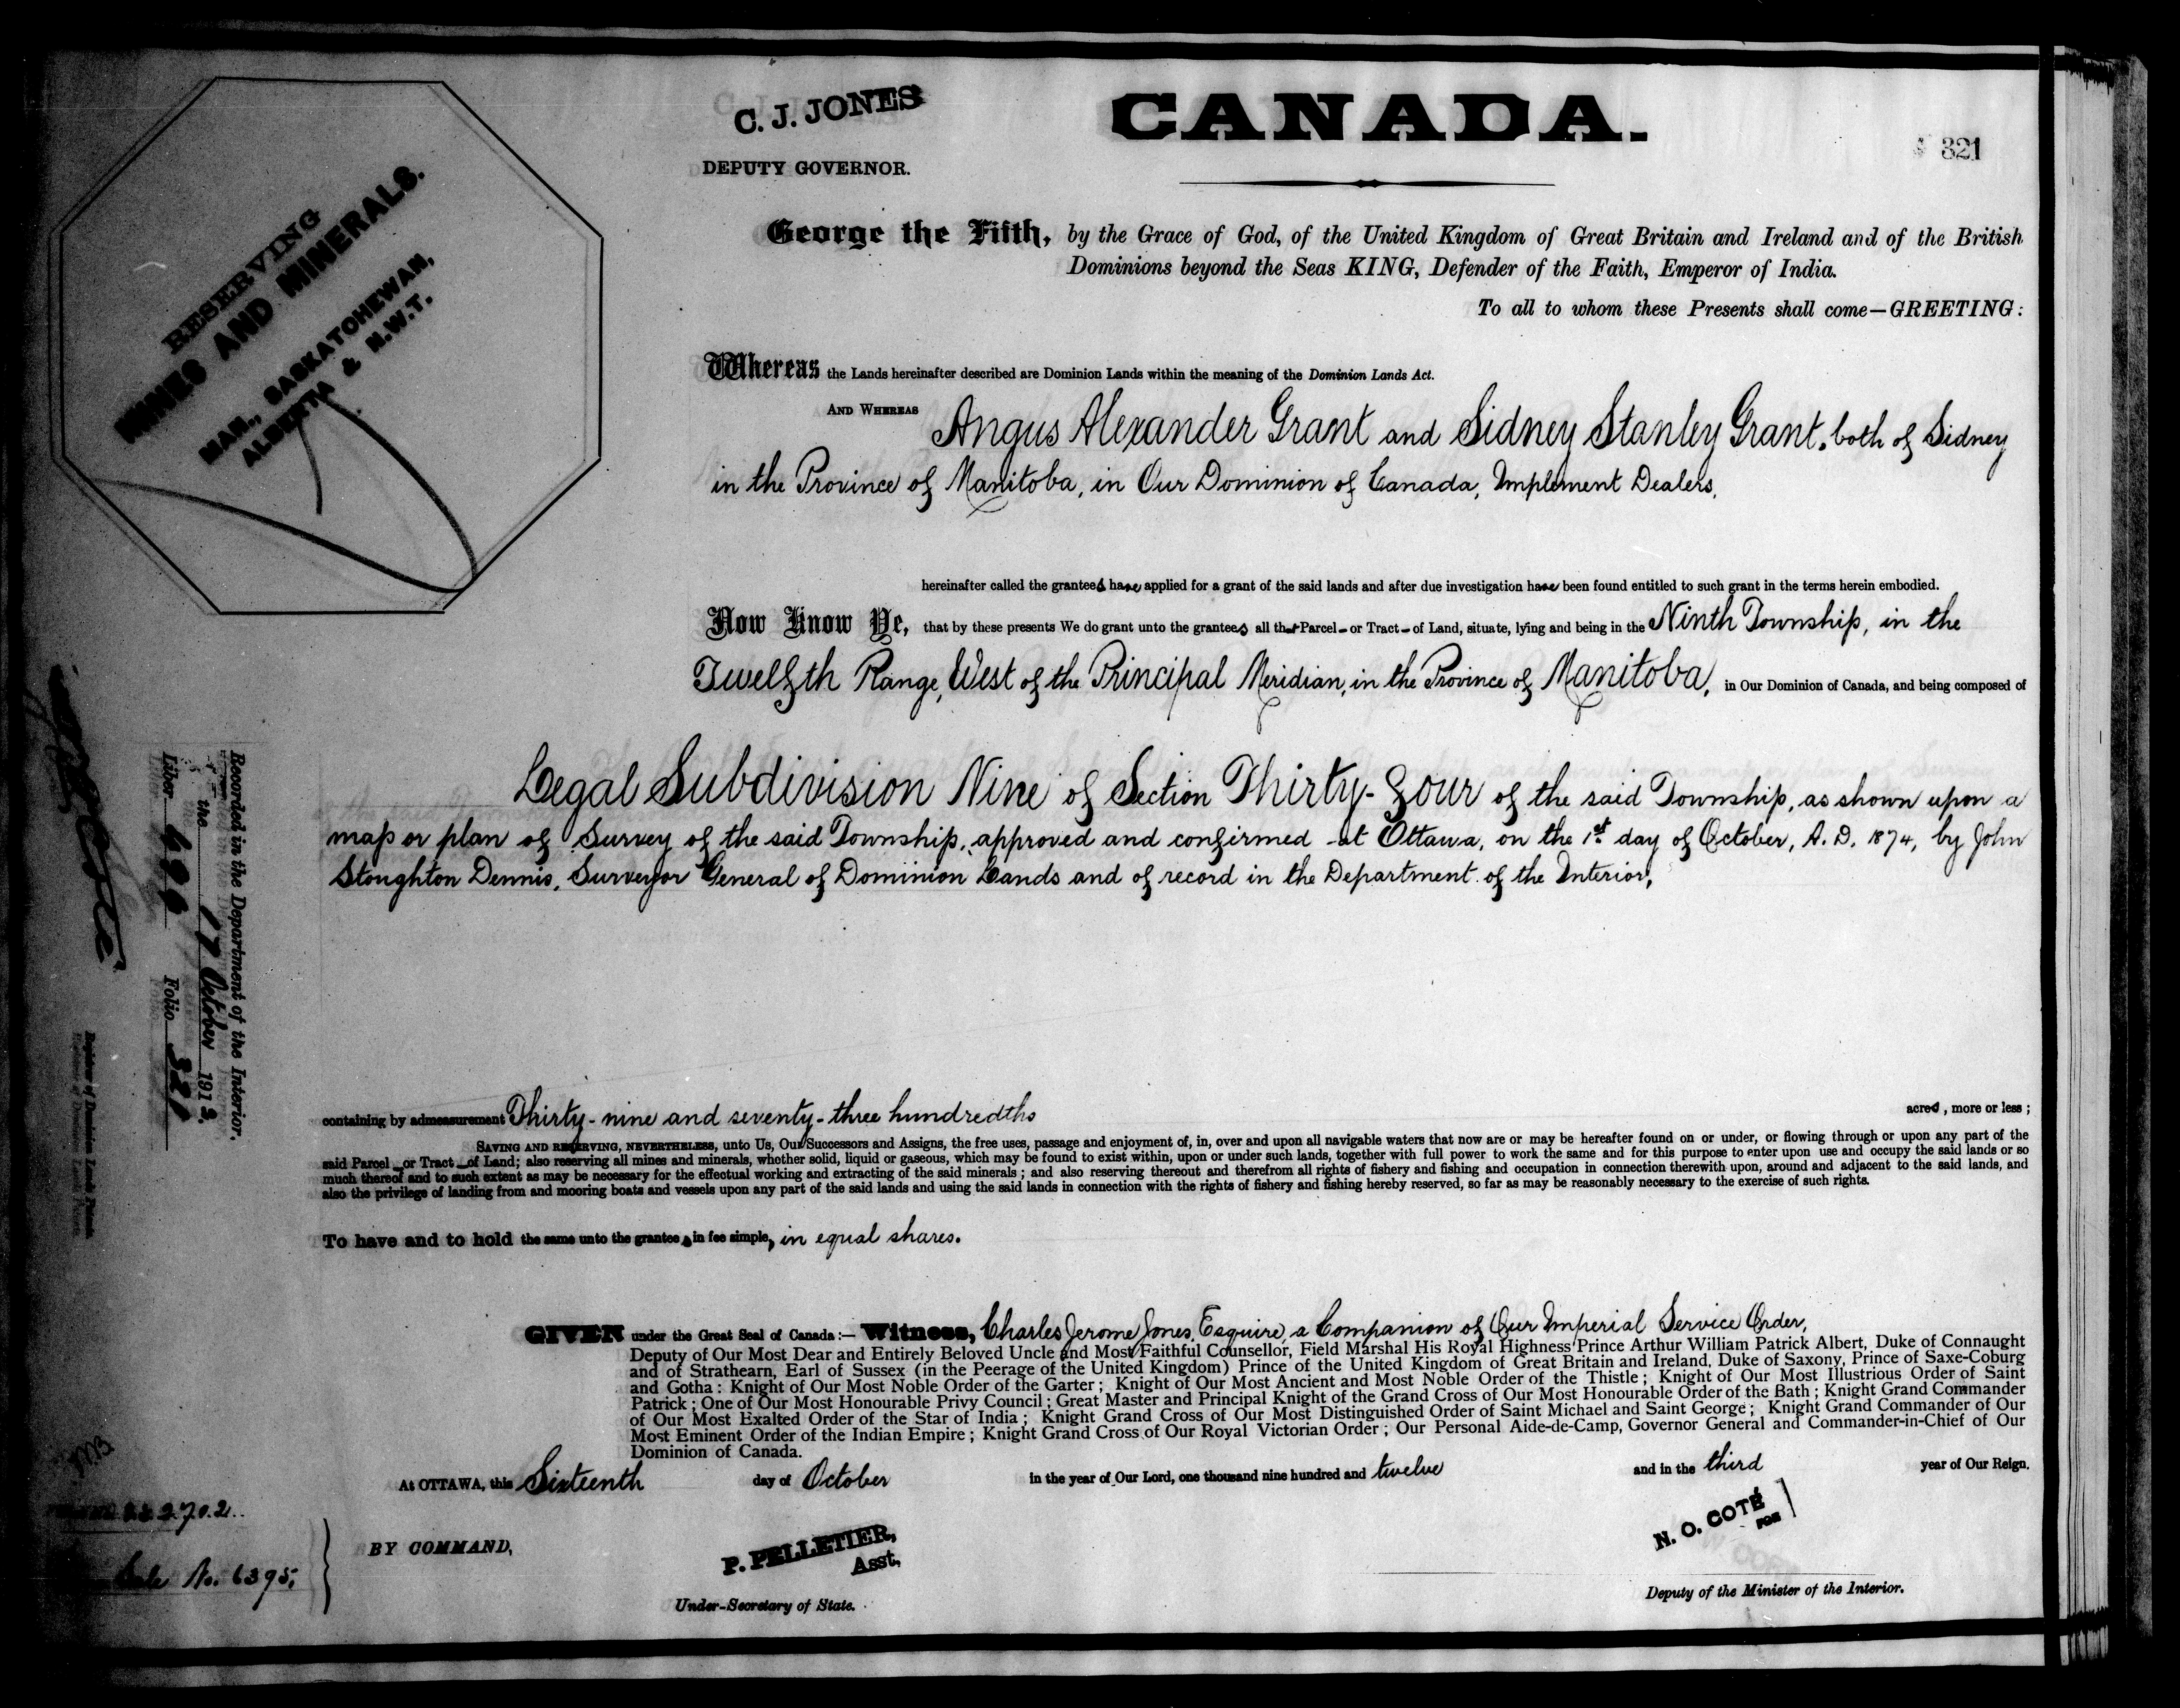 C. J. JONES
DEPUTY GOVERNOR.
CANADA.
321
RESERVING
MINES AND MINERALS.
MAN., SASKATCHEWAN,
ALBERTA & N.W.T.
George the Fifth, by the Grace of God, of the United Kingdom of Great Britain and Ireland and of the British
Dominions beyond the Seas KING, Defender of the Faith, Emperor of India.
To all to whom these Presents shall come—GREETING:
Whereas the Lands hereinafter described are Dominion Lands within the meaning of the Dominion Lands Act.
AND WHEREAS Angus Alexander Grant and Sidney Stanley Grant, both of Sidney
in the Province of Manitoba, in Our Dominion of Canada, Implement Dealers,
hereinafter called the grantees have applied for a grant of the said lands and after due investigation have been found entitled to such grant in the terms herein embodied.
Now Know Ye, that by these presents We do grant unto the grantees all that Parcel or Tract of Land, situate, lying and being in the Ninth Township, in the
Twelfth Range, West of the Principal Meridian, in the Province of Manitoba, in Our Dominion of Canada, and being composed of
Legal Subdivision Nine of Section Thirty-Four of the said Township, as shown upon a
map or plan of Survey of the said Township, approved and confirmed at Ottawa, on the 1st day of October, A. D. 1874, by John
Stoughton Dennis, Surveyor General of Dominion Lands and of record in the Department of the Interior,
containing by admeasurement Thirty-nine and seventy-three hundredths acres, more or less;
SAVING AND RESERVING, NEVERTHELESS, unto Us, Our Successors and Assigns, the free uses, passage and enjoyment of, in, over and upon all navigable waters that now are or may be hereafter found on or under, or flowing through or upon any part of the
said Parcel or Tract of Land; also reserving all mines and minerals, whether solid, liquid or gaseous, which may be found to exist within, upon or under such lands, together with full power to work the same and for this purpose to enter upon use and occupy the said lands or so
much thereof and to such extent as may be necessary for the effectual working and extracting of the said minerals; and also reserving thereout and therefrom all rights of fishery and fishing and occupation in connection therewith upon, around and adjacent to the said lands, and
also the privilege of landing from and mooring boats and vessels upon any part of the said lands and using the said lands in connection with the rights of fishery and fishing hereby reserved, so far as may be reasonably necessary to the exercise of such rights.
To have and to hold the same unto the grantees in fee simple, in equal shares.
GIVEN under the Great Seal of Canada:— Witness, Charles Jerome Jones, Esquire, a Companion of Our Imperial Service Order,
Deputy of Our Most Dear and Entirely Beloved Uncle and Most Faithful Counsellor, Field Marshal His Royal Highness Prince Arthur William Patrick Albert, Duke of Connaught
and of Strathearn, Earl of Sussex (in the Peerage of the United Kingdom) Prince of the United Kingdom of Great Britain and Ireland, Duke of Saxony, Prince of Saxe-Coburg
and Gotha: Knight of Our Most Noble Order of the Garter; Knight of Our Most Ancient and Most Noble Order of the Thistle; Knight of Our Most Illustrious Order of Saint
Patrick; One of Our Most Honourable Privy Council; Great Master and Principal Knight of the Grand Cross of Our Most Honourable Order of the Bath; Knight Grand Commander
of Our Most Exalted Order of the Star of India; Knight Grand Cross of Our Most Distinguished Order of Saint Michael and Saint George; Knight Grand Commander of Our
Most Eminent Order of the Indian Empire; Knight Grand Cross of Our Royal Victorian Order; Our Personal Aide-de-Camp, Governor General and Commander-in-Chief of Our
Dominion of Canada.
At OTTAWA, this Sixteenth day of October in the year of Our Lord, one thousand nine hundred and twelve and in the third year of Our Reign.
BY COMMAND,
P. PELLETIER,
Asst.
Under-Secretary of State.
N. O. COTÉ
FOR
Deputy of the Minister of the Interior.
Recorded in the Department of the Interior,
the 17 October 191
Liber Folio 321
Register of Dominion Lands Patents.
No. 6395,